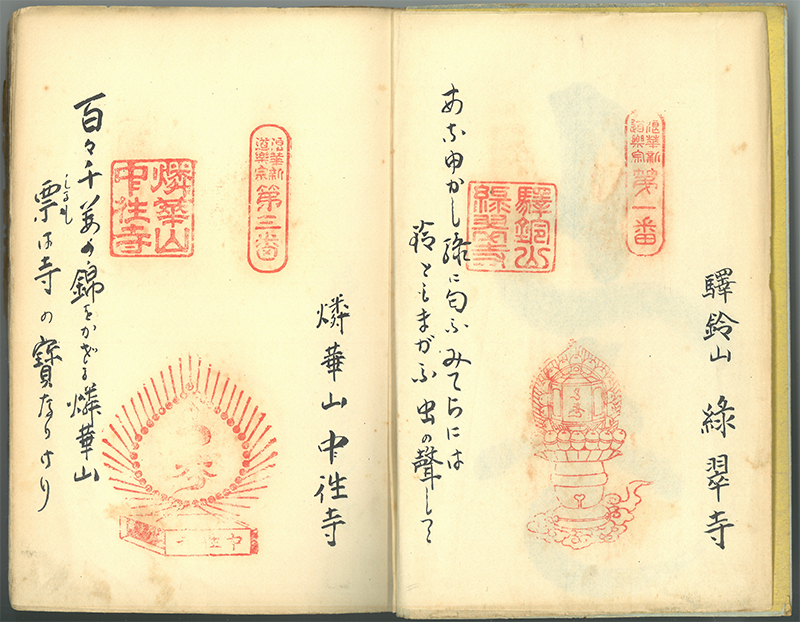 驛鈴山 綠翠寺
浪華新
道樂宗
第一番
驛鈴山
綠翠寺
あなゆかし綠に匂ふみてらには
鈴ともまがふ虫の聲して
燐華山 中性寺
浪華新
道樂宗
第三番
燐華山
中性寺
百々千萬の錦をかざる燐華山
票は寺の寶なりけり